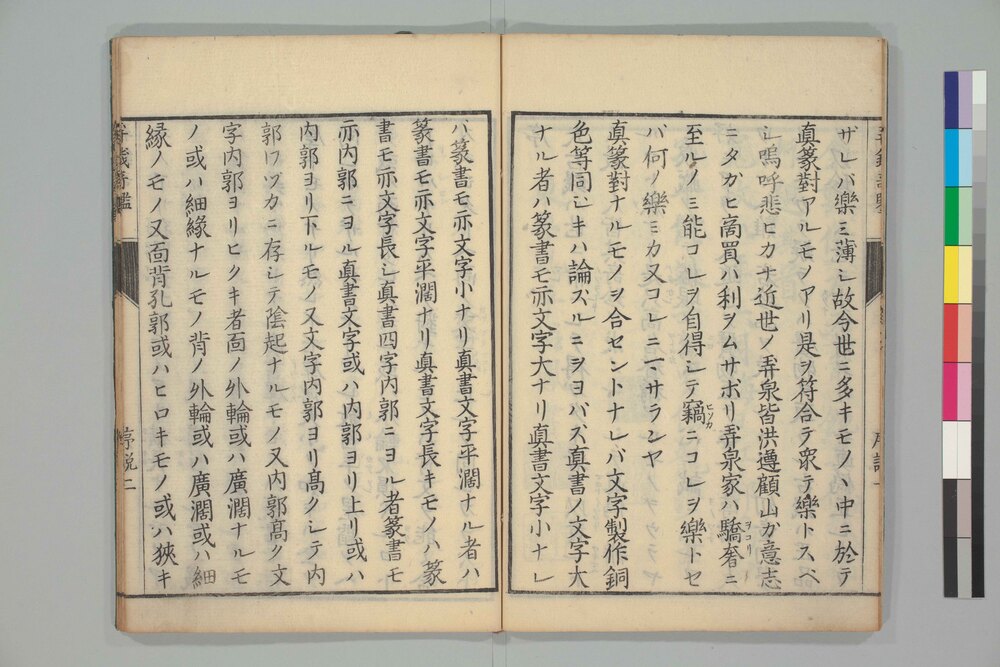 ザレバ樂ミ薄シ故今世ニ多キモノハ中ニ於テ
真篆對アルモノアリ是ヲ符合テ衆テ樂トスベ
シ嗚呼悲ヒカナ近世ノ弄泉皆洪遵顧山カ意志
ニタガヒ商買ハ利ヲムサボリ弄泉家ハ驕奢ニ
ヲコリ
至ルノミ能コレヲ自得シテ竊ニコレヲ樂トセ
ヒソカ
バ何ノ樂ミカ又コレニマサランヤ
真篆對ナルモノヲ合セントナレバ文字製作銅
色等同シキハ論ズルニヲヨバズ真書ノ文字大
ナル者ハ篆書モ亦文字大ナリ真書文字小ナレ
バ篆書モ亦文字小ナリ真書文字平濶ナル者ハ
篆書モ亦文字平濶ナリ真書文字長キモノハ篆
書モ亦文字長シ真書四字内郭ニヨル者篆書モ
亦内郭ニヨル真書文字或ハ内郭ヨリ上リ或ハ
内郭ヨリ下ルモノ又文字内郭ヨリ髙クシテ内
郭ワヅカニ存シテ陰起ナルモノ又内郭髙ク文
字内郭ヨリヒクキ者面ノ外輪或ハ廣濶ナルモ
ノ或ハ細緣ナルモノ背ノ外輪或ハ廣濶或ハ細
緣ノモノ又面背孔郭或ハヒロキモノ或ハ狹キ
序説二